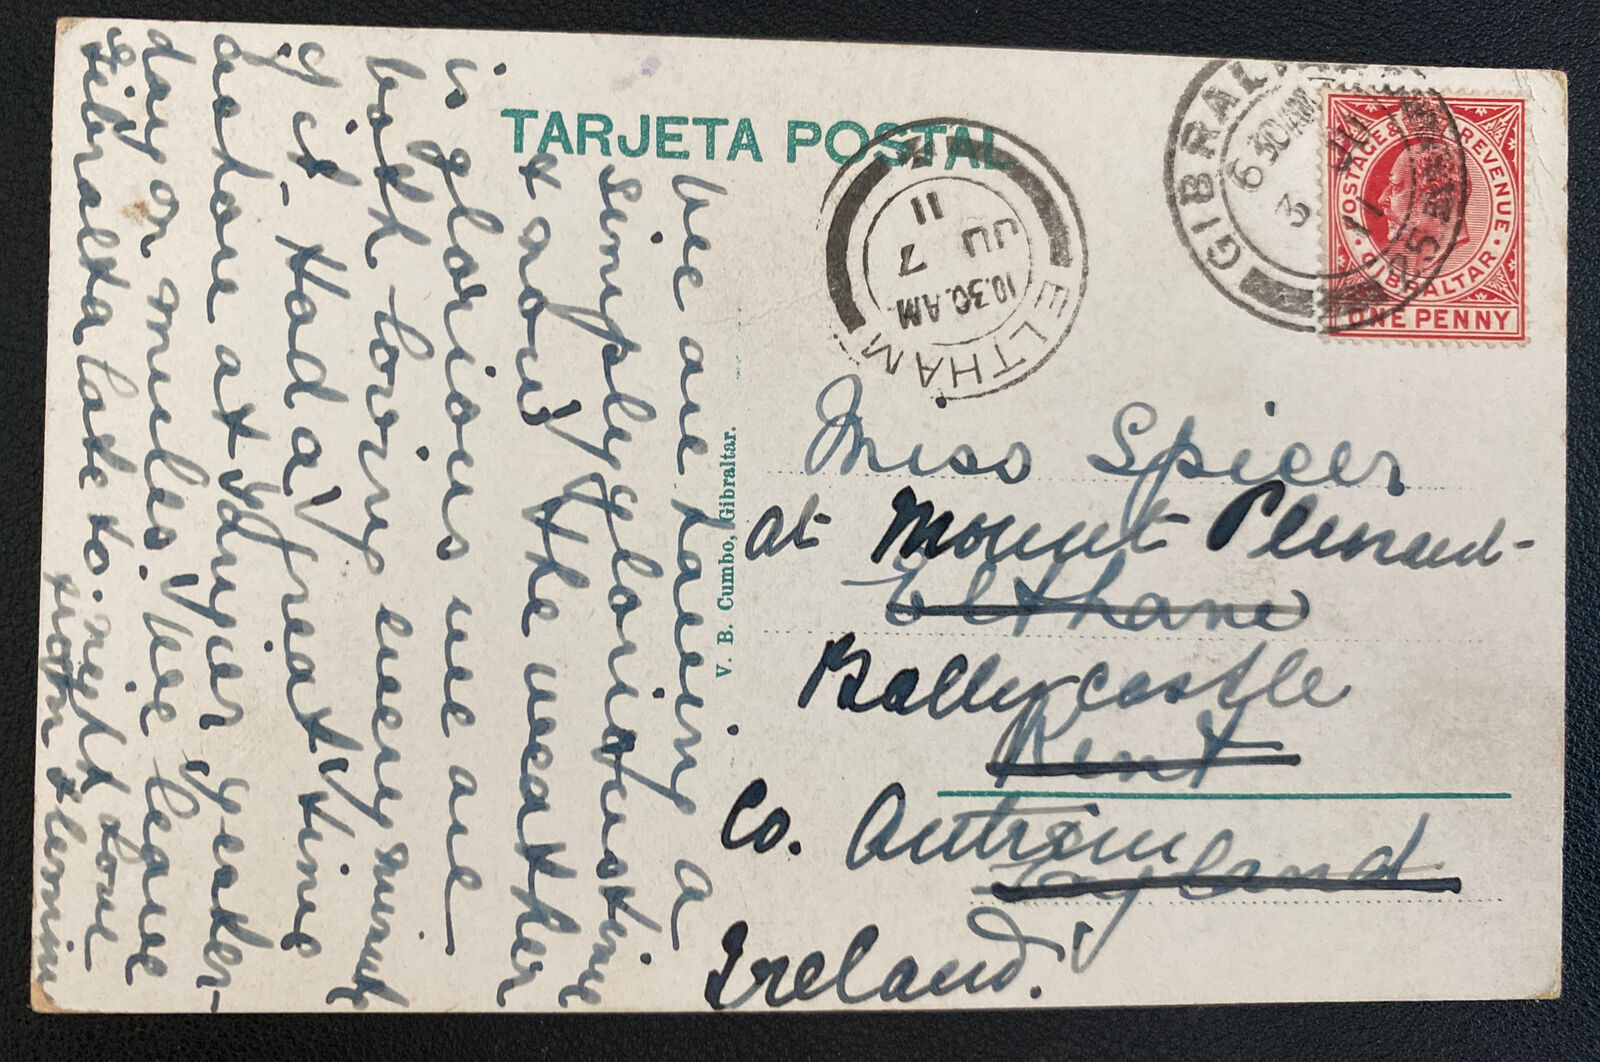 TARJETA POSTAL
GIBRALTAR
6 30 AM
3 JU
11
POSTAGE & REVENUE
GIBRALTAR
ONE PENNY
ELTHAM
10.30.AM
JU 7
11
V. B. Cumbo, Gibraltar.
Miss Spicer
at Mount Pleasant
Eltham
Ballycastle
Kent
Co. Antrim
England
Ireland.
We are having a
simply glorious time
& now the weather
is glorious we are
both loving every minute
of it - Had a great time
ashore at Tangier yester-
day on mules. We leave
Gibraltar late to-night Love
from